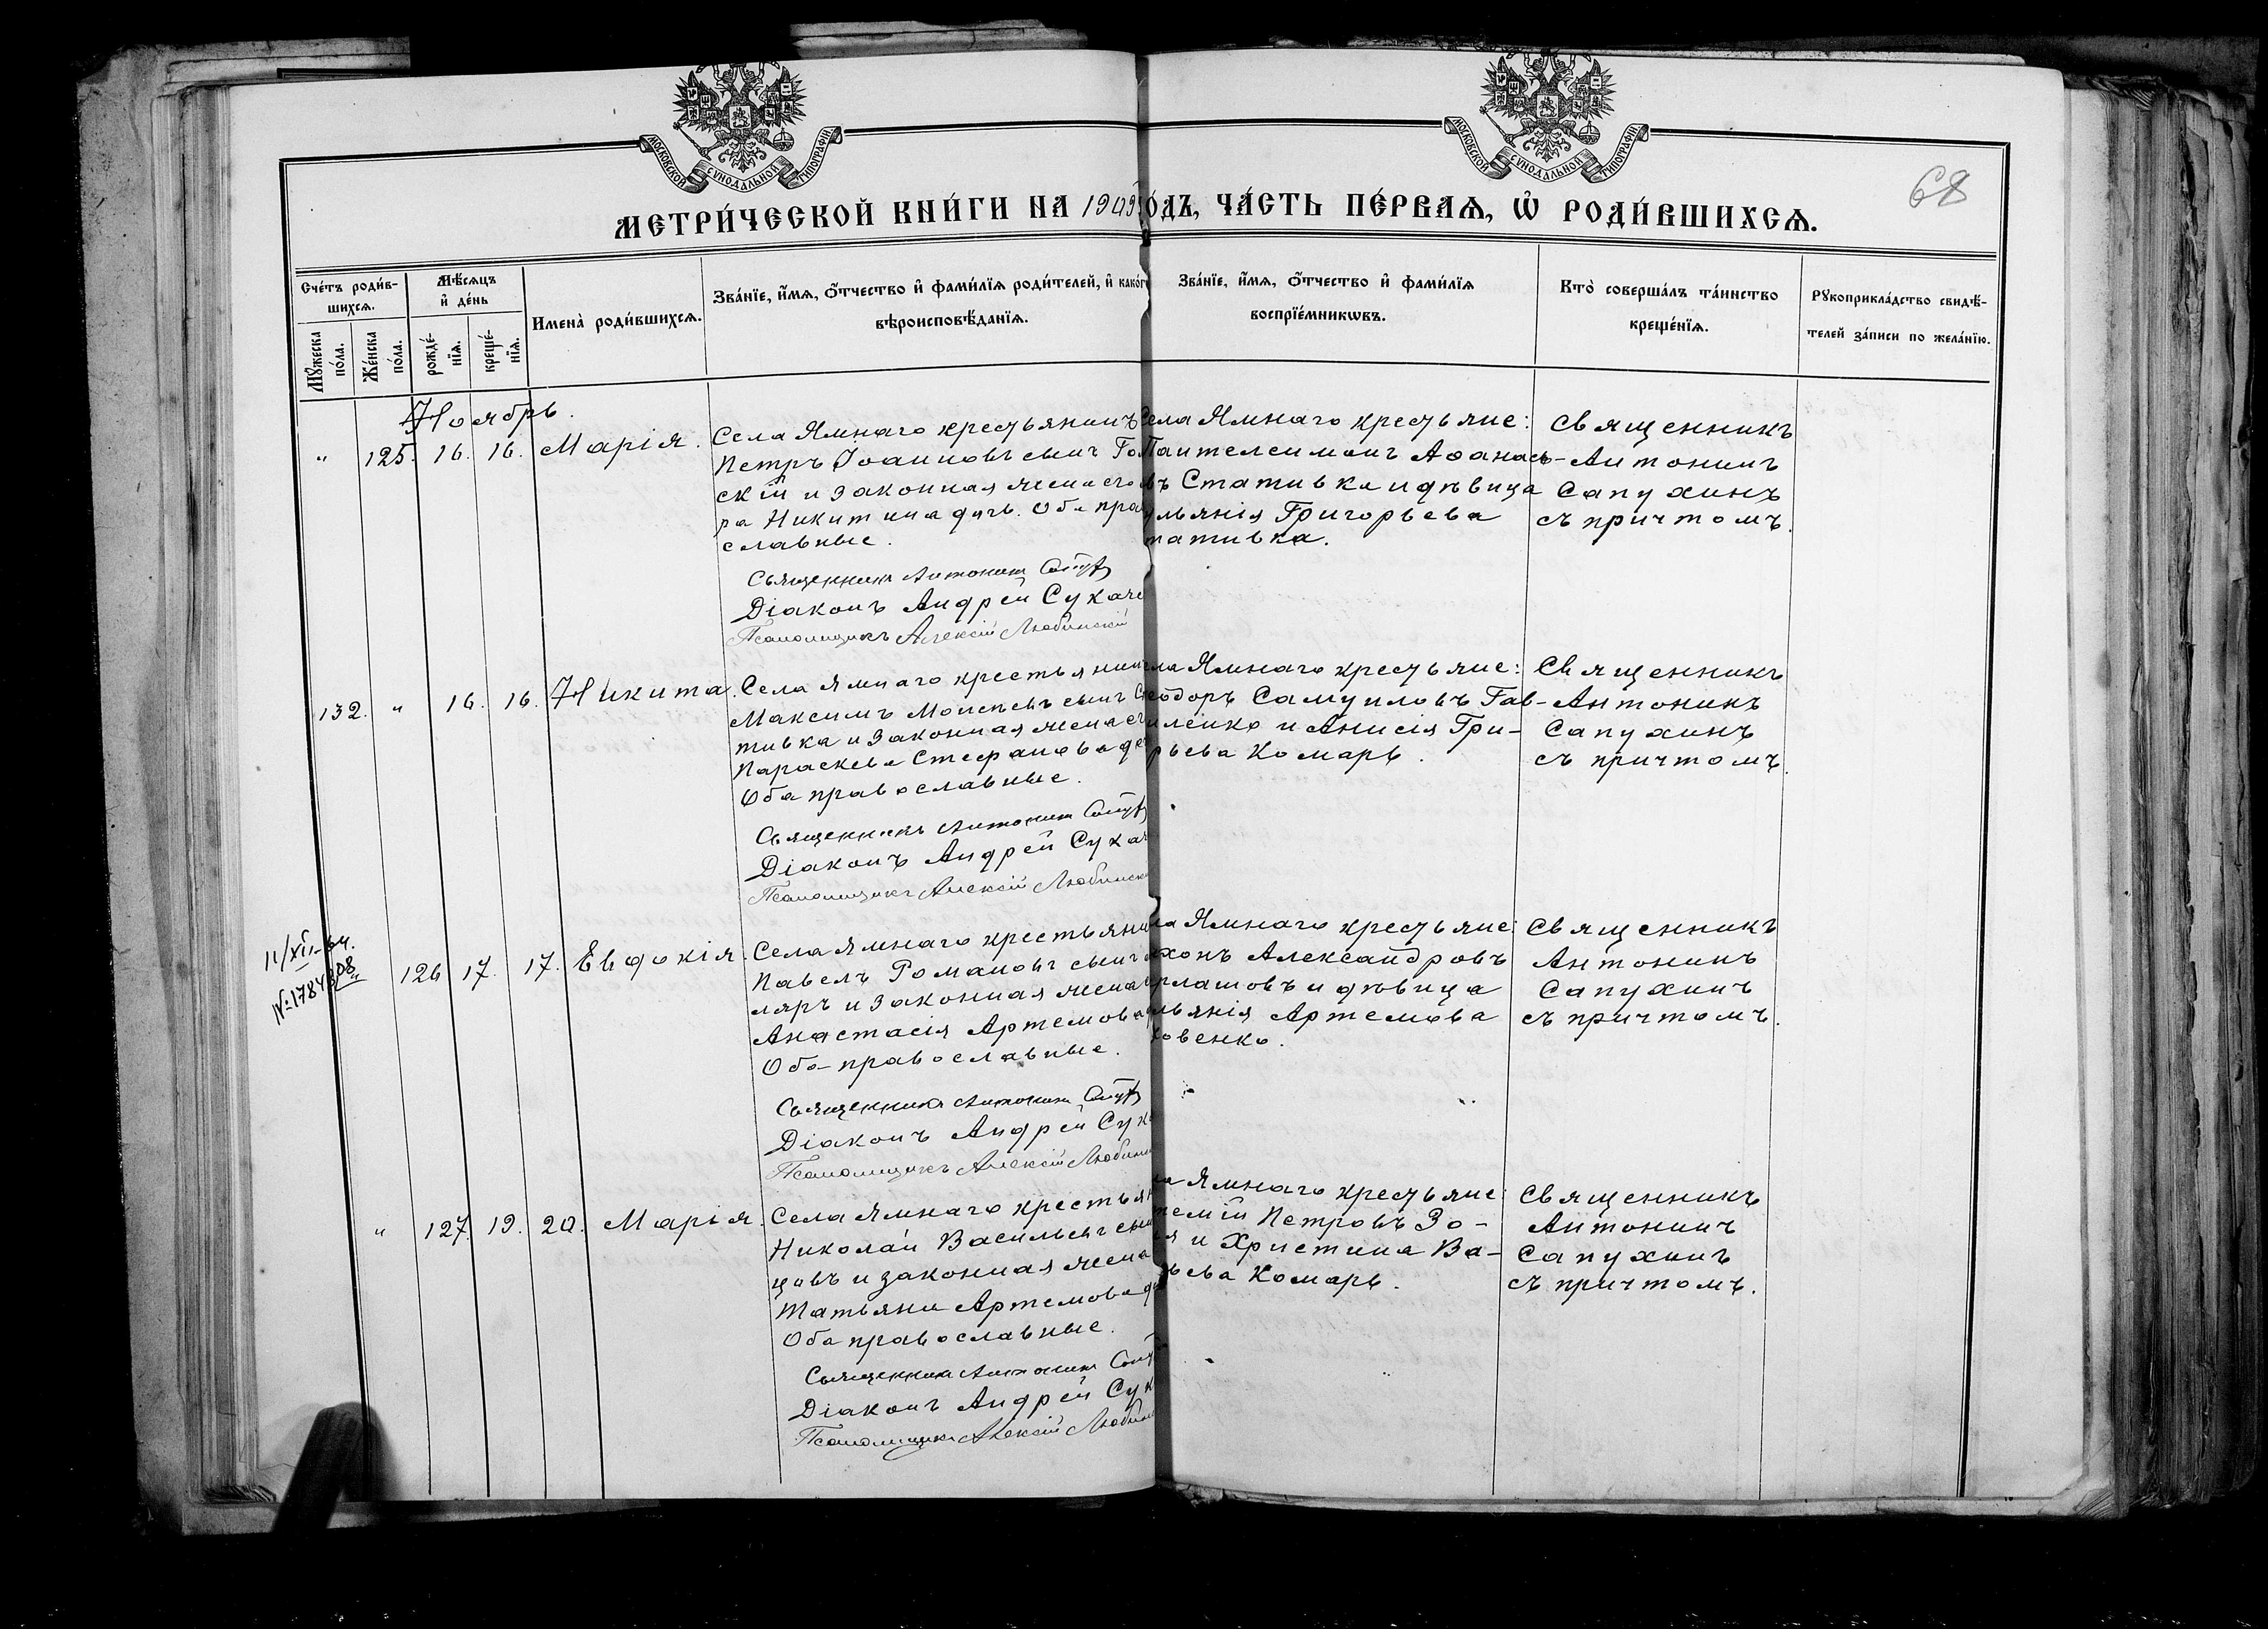 МОСКОВСКОЙ СѴНОДАЛЬНОЙ ТИПОГРАФІИ
МОСКОВСКОЙ СѴНОДАЛЬНОЙ ТИПОГРАФІИ
68
МЕТРИ́ЧЕСКОЙ КНИ́ГИ НА 1909 ГО́ДЪ, ЧА́СТЬ ПЕ́РВАѦ, Ѡ РОДИ́ВШИХСѦ.
Сче́тъ роди́вшихсѧ.
Мꙋ́жеска по́ла.
Же́нска по́ла.
Мѣ́сѧцъ и҆ де́нь
рожде́нїѧ.
креще́нїѧ.
Имена̀ роди́вшихсѧ.
Зва́нїе, и҆́мѧ, ѻ҆́тчество и҆ фами́лїѧ роди́телей, и҆ како́г
вѣроисповѣ́данїѧ.
Зва́нїе, и҆́мѧ, ѻ҆́тчество и҆ фами́лїѧ
воспрїе́мникѡвъ.
Кто̀ соверша́лъ та́инство
креще́нїѧ.
Рꙋкоприкла́дство свидѣ́-
телей за́писи по жела́нїю.
Ноябрь.
" 125. 16. 16. Марія.
Села Ямнаго крестьянинъ
Петръ Іоанновъ сынъ Го
скій и законная жена его
ра Никитина дочь. Оба прав
славные.
Священникъ Антонинъ
Діаконъ Андрей Сукаче
Псаломщикъ Алексій Любинскій
Села Ямнаго крестьяне:
Пантелеимонъ Аѳанась-
въ Стативка и дѣвица
ульянія Григорьева
тативка.
Священникъ
Антонинъ
Сапухинъ
съ причтомъ.
132. " 16. 16. Никита.
Села Ямнаго крестьянин
Максимъ Моисеевъ сынъ С
тивка и законная жена ег
Параскева Стефанова доч
Оба православные.
Священникъ Антонинъ
Діаконъ Андрей Сукач
Псаломщикъ Алексій Любинск
ела Ямнаго крестьяне:
еодоръ Самуиловъ Гав-
иленко и Анисія Гри-
рьева Комарь.
Священникъ
Антонинъ
Сапухинъ
съ причтомъ.
11/XII-64.
№178408
126 17. 17. Евдокія.
Села Ямнаго крестьяни
Павелъ Романовъ сынъ
ляръ и законная жена
Анастасія Артемова
Оба православные.
Священникъ Антонинъ
Діаконъ Андрей Сук
Псаломщикъ Алексій Любин
ла Ямнаго крестьяне:
ихонъ Александровъ
рлашовъ и дѣвица
льянія Артемова
ковенко.
Священникъ
Антонинъ
Сапухинъ
съ причтомъ.
" 127. 19. 20. Марія.
Села Ямнаго крестьян
Николай Васильевъ сын
цовъ и законная жена
Татьяна Артемова д
Оба православные.
Священникъ Антонинъ
Діаконъ Андрей Сук
Псаломщикъ Алексій Любин
ла Ямнаго крестьяне:
темій Петровъ Зо-
я и Христина Ва-
ьева Комарь.
Священникъ
Антонинъ
Сапухинъ
съ причтомъ.